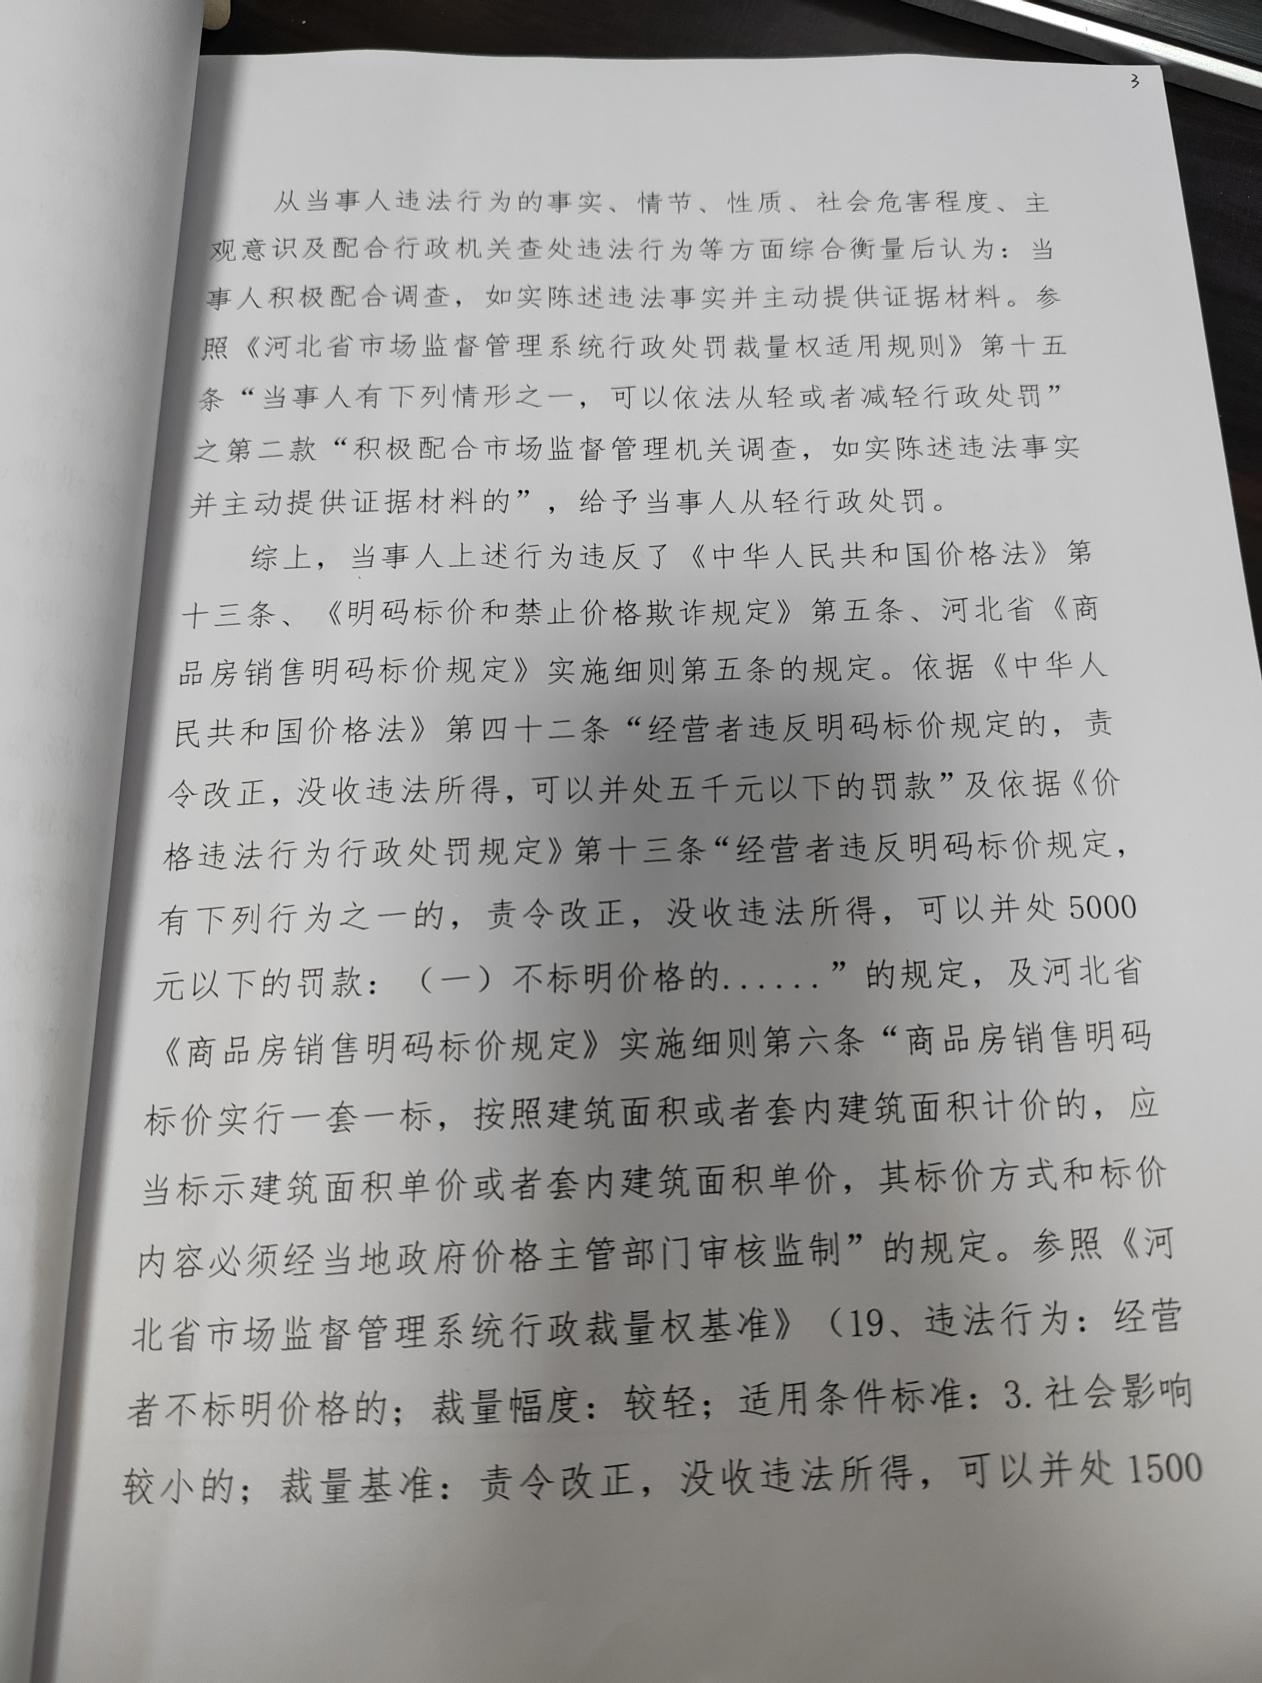 3
从当事人违法行为的事实、情节、性质、社会危害程度、主
观意识及配合行政机关查处违法行为等方面综合衡量后认为：当
事人积极配合调查，如实陈述违法事实并主动提供证据材料。参
照《河北省市场监督管理系统行政处罚裁量权适用规则》第十五
条“当事人有下列情形之一，可以依法从轻或者减轻行政处罚”
之第二款“积极配合市场监督管理机关调查，如实陈述违法事实
并主动提供证据材料的”，给予当事人从轻行政处罚。
综上，当事人上述行为违反了《中华人民共和国价格法》第
十三条、《明码标价和禁止价格欺诈规定》第五条、河北省《商
品房销售明码标价规定》实施细则第五条的规定。依据《中华人
民共和国价格法》第四十二条“经营者违反明码标价规定的，责
令改正，没收违法所得，可以并处五千元以下的罚款”及依据《价
格违法行为行政处罚规定》第十三条“经营者违反明码标价规定，
有下列行为之一的，责令改正，没收违法所得，可以并处 5000
元以下的罚款：（一）不标明价格的......”的规定，及河北省
《商品房销售明码标价规定》实施细则第六条“商品房销售明码
标价实行一套一标，按照建筑面积或者套内建筑面积计价的，应
当标示建筑面积单价或者套内建筑面积单价，其标价方式和标价
内容必须经当地政府价格主管部门审核监制”的规定。参照《河
北省市场监督管理系统行政裁量权基准》（19、违法行为：经营
者不标明价格的；裁量幅度：较轻；适用条件标准：3.社会影响
较小的；裁量基准：责令改正，没收违法所得，可以并处 1500